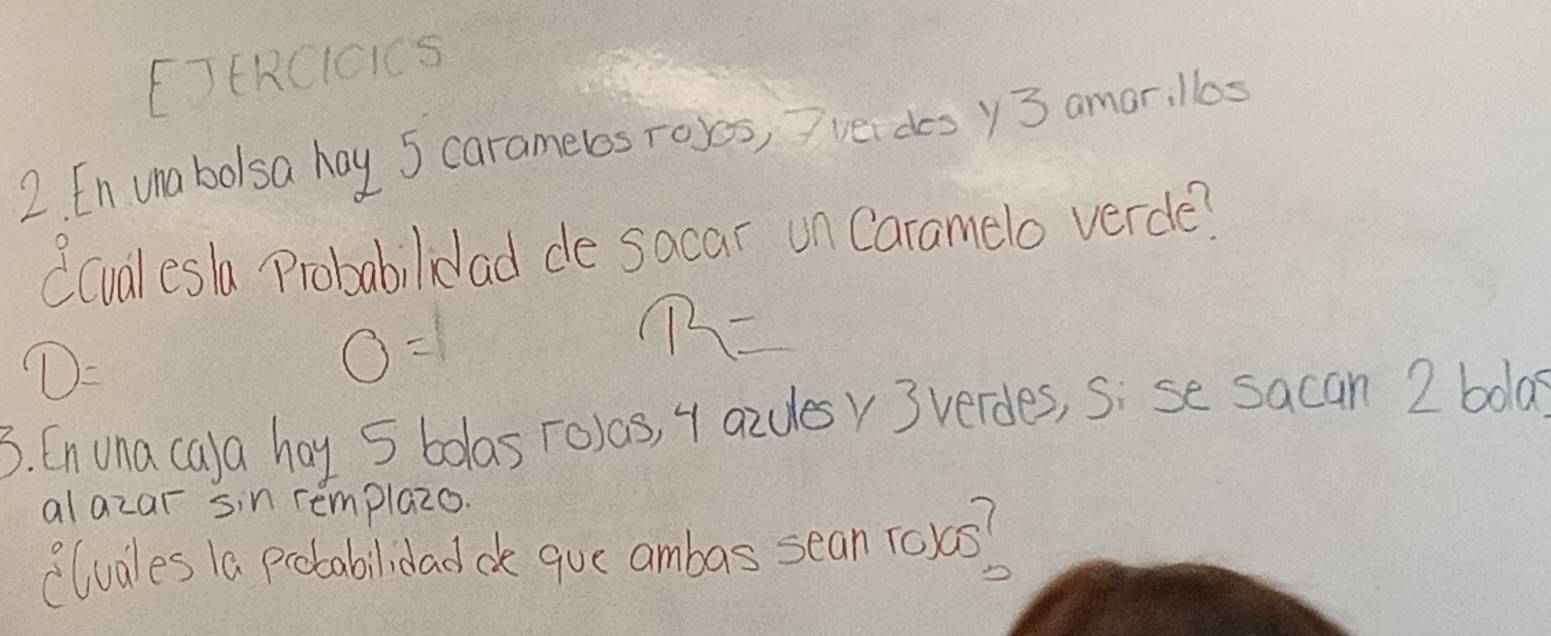 EJERCICIOS
2. En una bolsa hay 5 caramelos rojos, 7 verdes y 3 amarillos
¿Cuál es la Probabilidad de sacar un Caramelo verde?
D= O= R=
3. En una caja hay 5 bolas rojas, 4 azules y 3 verdes, Si se sacan 2 bolas
al azar sin remplazo.
¿Cuál es la probabilidad de que ambas sean rojas?